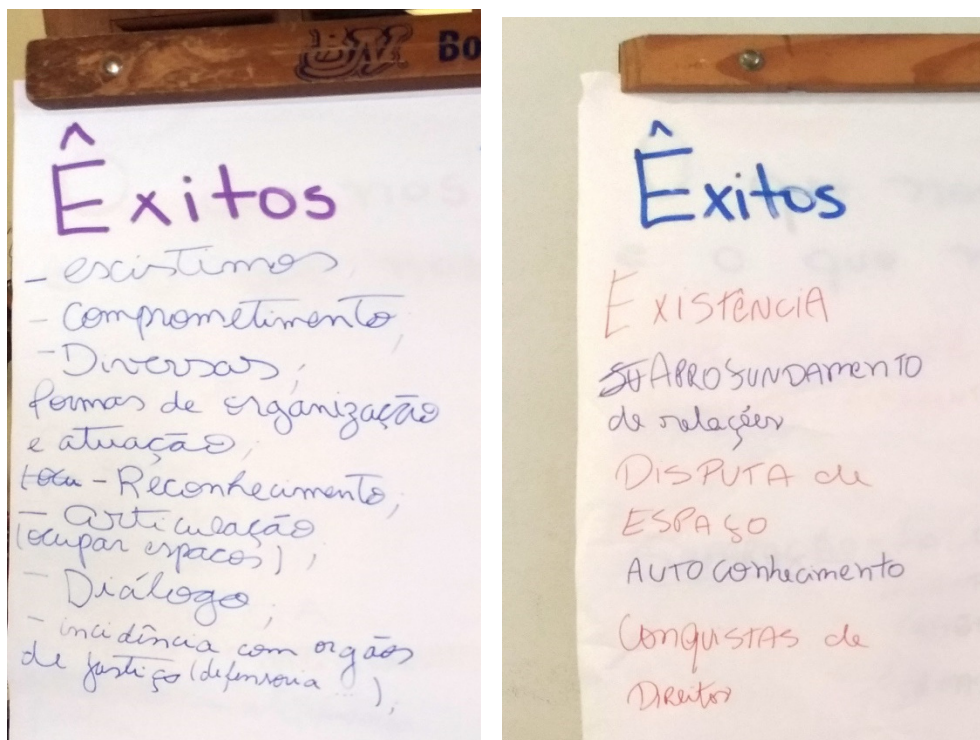 BM Bo
Êxitos
- existimos
- comprometimento,
- Diversas;
formas de organização
e atuação;
- Reconhecimento;
- articulação
(ocupar espaços);
- Diálogo;
- incidência com orgãos
de justiça (defensoria ...);
Êxitos
EXISTÊNCIA
APROFUNDAMENTO
de relações
DISPUTA de
ESPAÇO
AUTOCONhecimento
CONQUISTAS de
Direitos